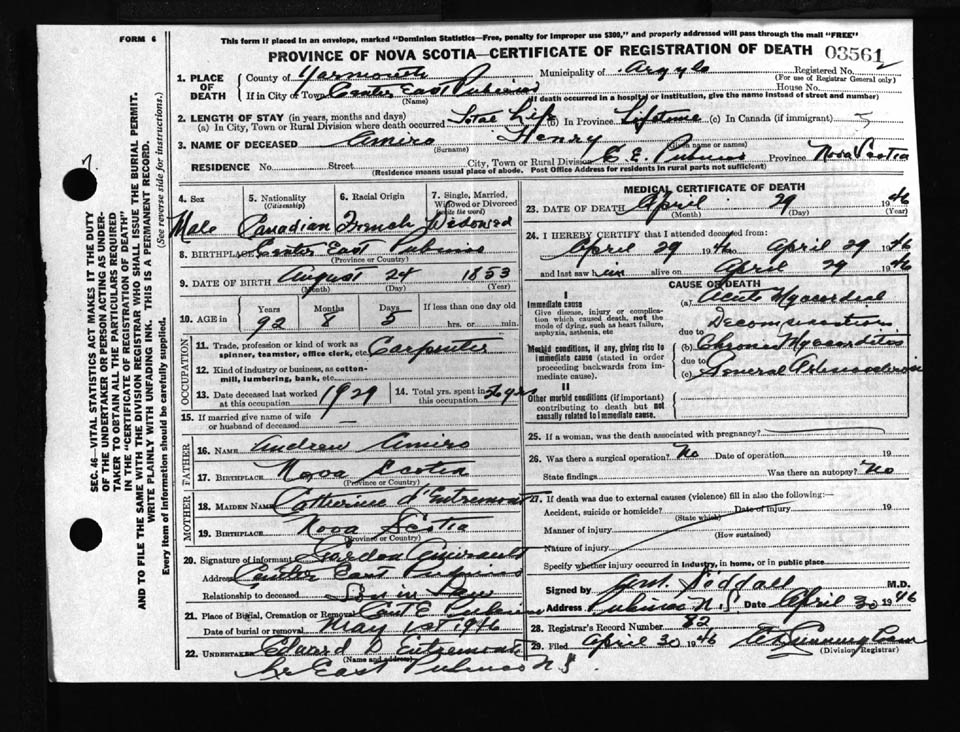 FORM 6
This form if placed in an envelope, marked "Dominion Statistics—Free, penalty for improper use $300," and properly addressed will pass through the mail "FREE"
PROVINCE OF NOVA SCOTIA—CERTIFICATE OF REGISTRATION OF DEATH 03561
1. PLACE OF DEATH County of Yarmouth Municipality of Argyle Registered No.
(For use of Registrar General only)
If in City or Town Center East Pubnico House No.
(Name) (If death occurred in a hospital or institution, give the name instead of street and number)
2. LENGTH OF STAY (in years, months and days)
(a) In City, Town or Rural Division where death occurred Total Life (b) In Province Lifetime (c) In Canada (if immigrant)
3. NAME OF DECEASED Amiro Henry
(Surname) (Given name or names)
RESIDENCE No. Street City, Town or Rural Division C. E. Pubnico Province Nova Scotia
(Residence means usual place of abode. Post Office Address for residents in rural parts not sufficient)
4. Sex 5. Nationality (Citizenship) 6. Racial Origin 7. Single, Married, Widowed or Divorced (write the word)
Male Canadian French Widowed
8. BIRTHPLACE Center East Pubnico
(Province or Country)
9. DATE OF BIRTH August 24 1853
(Month) (Day) (Year)
10. AGE in Years Months Days If less than one day old
92 8 5 hrs. or min.
OCCUPATION
11. Trade, profession or kind of work as spinner, teamster, office clerk, etc. Carpenter
12. Kind of industry or business, as cotton-mill, lumbering, bank, etc.
13. Date deceased last worked at this occupation 1929 14. Total yrs. spent in this occupation
15. If married give name of wife or husband of deceased —
FATHER
16. NAME Andrew Amiro
17. BIRTHPLACE Nova Scotia
MOTHER
18. MAIDEN NAME Catherine d'Entremont
19. BIRTHPLACE Nova Scotia
(Province or Country)
20. Signature of informant Gordon Amirault
Address Center East Pubnico
Relationship to deceased Son in Law
21. Place of Burial, Cremation or Removal Cent E. Pubnico
Date of burial or removal May 1st 1946
22. UNDERTAKER Edward D Entremont
(Name and address)
East Pubnico N.S.
MEDICAL CERTIFICATE OF DEATH
23. DATE OF DEATH April 29 1946
(Month) (Day) (Year)
24. I HEREBY CERTIFY that I attended deceased from:
April 29 1946 April 29 1946
and last saw him alive on April 29 1946
CAUSE OF DEATH
I
Immediate cause
Give disease, injury or complication which caused death, not the mode of dying, such as heart failure, asphyxia, asthenia, etc
(a) Acute Myocardial
Decompensation
due to
Morbid conditions, if any, giving rise to immediate cause (stated in order proceeding backwards from immediate cause).
(b) Chronic Myocarditis
due to
(c) General Arteriosclerosis
II
Other morbid conditions (if important) contributing to death but not causally related to immediate cause.
25. If a woman, was the death associated with pregnancy?
26. Was there a surgical operation? No Date of operation 19
State findings Was there an autopsy? No
27. If death was due to external causes (violence) fill in also the following:—
Accident, suicide or homicide? Date of injury 19
(State which)
Manner of injury
(How sustained)
Nature of injury
Specify whether injury occurred in industry, in home, or in public place
Signed by Siddall M.D.
Address Pubnico N.S. Date April 30 1946
28. Registrar's Record Number 82
29. Filed April 30 1946
(Division Registrar)
SEC. 46—VITAL STATISTICS ACT MAKES IT THE DUTY
OF THE UNDERTAKER OR PERSON ACTING AS UNDERTAKER TO OBTAIN ALL THE PARTICULARS REQUIRED
IN THE "CERTIFICATE OF REGISTRATION OF DEATH"
AND TO FILE THE SAME WITH THE DIVISION REGISTRAR WHO SHALL ISSUE THE BURIAL PERMIT.
WRITE PLAINLY WITH UNFADING INK. THIS IS A PERMANENT RECORD.
Every item of information should be carefully supplied. (See reverse side for instructions.)